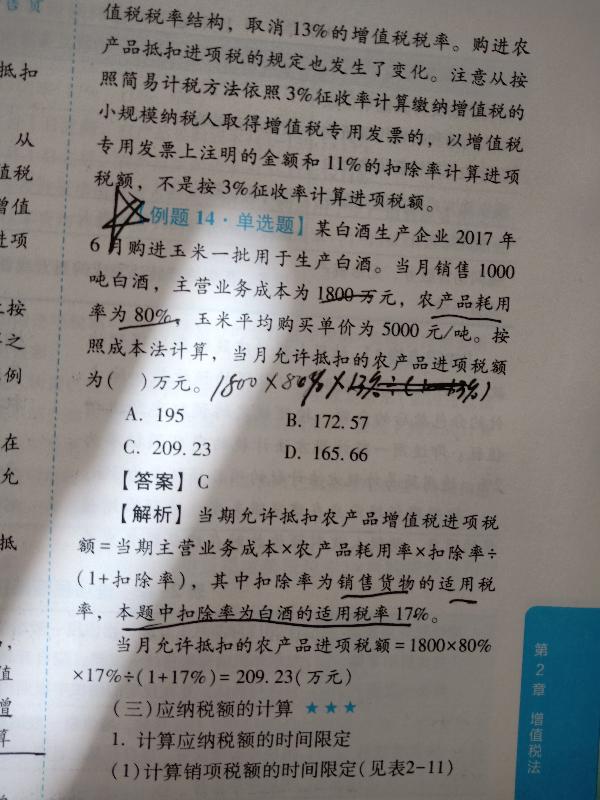 值税税率结构，取消13%的增值税税率。购进农
产品抵扣进项税的规定也发生了变化。注意从按
照简易计税方法依照3%征收率计算缴纳增值税的
小规模纳税人取得增值税专用发票的，以增值税
专用发票上注明的金额和11%的扣除率计算进项
税额，不是按3%征收率计算进项税额。
例题14·单选题】某白酒生产企业2017年
6月购进玉米一批用于生产白酒。当月销售1000
吨白酒，主营业务成本为1800万元，农产品耗用
率为80%，玉米平均购买单价为5000元/吨。按
照成本法计算，当月允许抵扣的农产品进项税额
为( )万元。1800×80%×13%÷(1-13%)
A. 195
B. 172.57
C. 209.23
D. 165.66
【答案】C
【解析】当期允许抵扣农产品增值税进项税
额=当期主营业务成本×农产品耗用率×扣除率÷
(1+扣除率)，其中扣除率为销售货物的适用税
率，本题中扣除率为白酒的适用税率17%。
当月允许抵扣的农产品进项税额=1800×80%
×17%÷(1+17%)=209.23(万元)
(三)应纳税额的计算 ★★★
1. 计算应纳税额的时间限定
(1)计算销项税额的时间限定(见表2-11)
第2章 增值税法
抵扣
从
值税
增值
进项
上按
之
例
在
允
抵
值
增
算